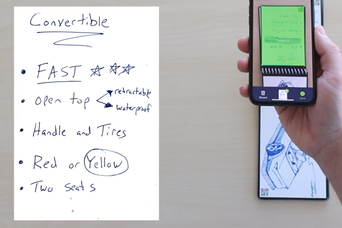 Convertible
• FAST ☆☆☆
• open top retractable
waterproof
• Handle and Tires
• Red or Yellow
• Two seats